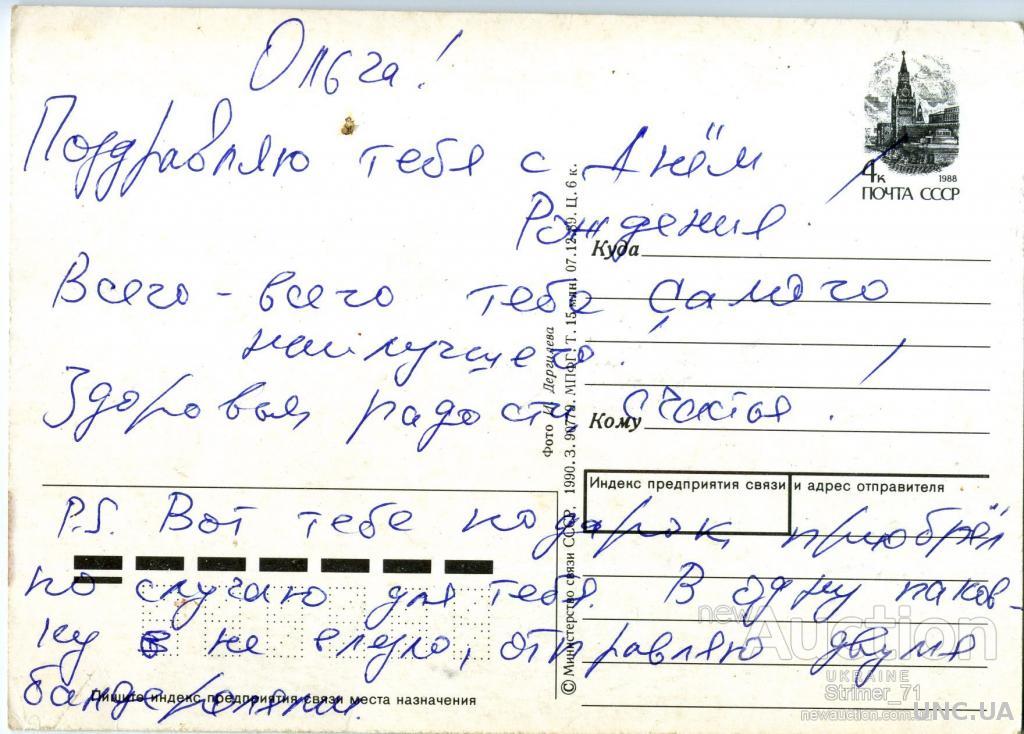 Ольга!
Поздравляю тебя с Днём
Рождения.
Всего-всего тебе самого
наилучшего!
Здоровья, радости, счастья!
P.S. Вот тебе подарок, приобрёл
по случаю для тебя. В одну паков-
ку не влезло, отправляю двумя
бандеролями.
4к
1988
ПОЧТА СССР
Куда
Кому
Индекс предприятия связи и адрес отправителя
Пишите индекс предприятия связи места назначения
© Министерство связи СССР. 1990. З. 90779. МПФГ. Т. 15 млн. 07.12.89. Ц. 6 к.
Фото И. Дергилева
newAuction
UKRAINE
Strimer_71
newauction.com.ua
UNC.UA